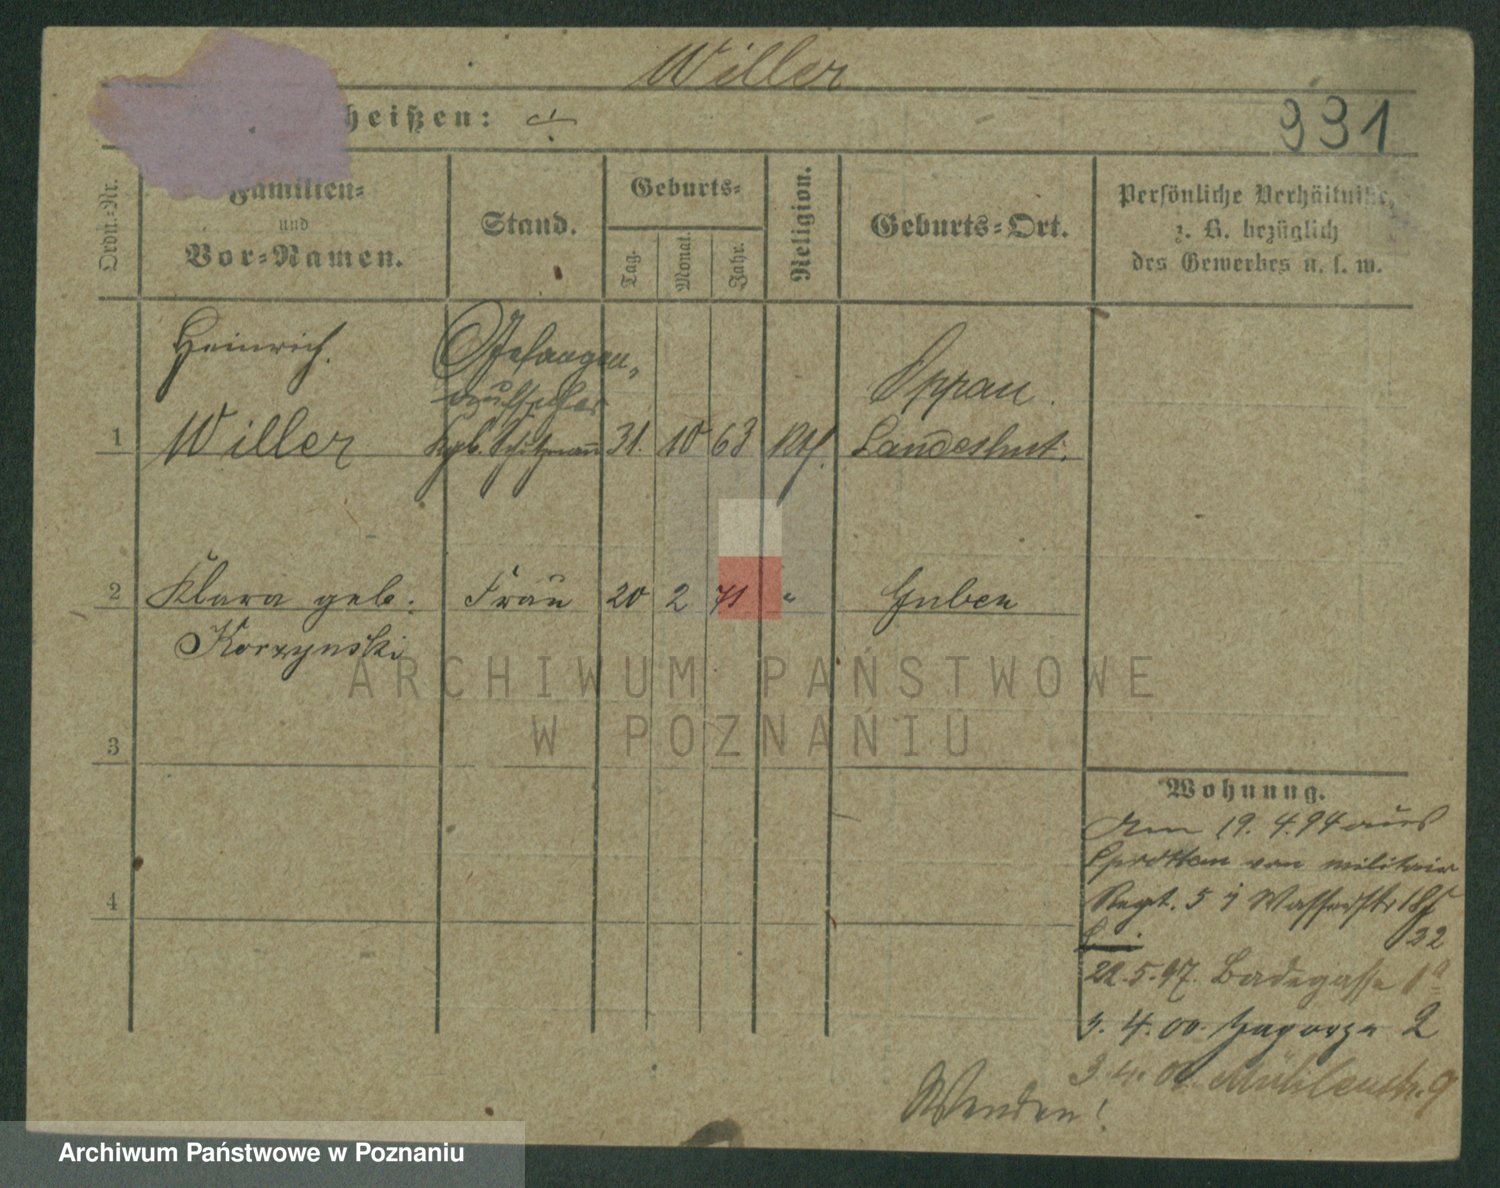 Willer
heißen: ./.
991
Ordn.-Nr.
Familien-
und
Vor-Namen.
Stand.
Geburts-
Tag.
Monat.
Jahr.
Religion.
Geburts-Ort.
Persönliche Verhältnisse,
z. B. bezüglich
des Gewerbes u. s. w.
Heinrich.
Gefangen-
aufseher
Oppau.
1 Willer Kgl. Schutzmann 31. 10 63 Kth. Landeshut.
2 Klara geb. Frau 20 2 71 " Guben
Korzynski
ARCHIWUM PAŃSTWOWE
W POZNANIU
3
4
Wohnung.
Am 19. 4. 94 aus
Sprottau von militair
Regt. 5 Wasserstr 18
22
22.5.97. Badegasse 1a
3. 4. 00. Zagorze 2
3. 4. Mühlenstr. 9
Wenden!
Archiwum Państwowe w Poznaniu